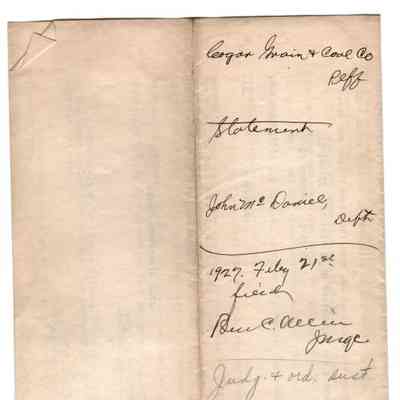 Cogar Grain & Coal Co
Plff
Statement
John Mc Daniel,
Deft
1927. Feby 21st
filed
Ben C. Allin
Judge
Judg. & ord. sust